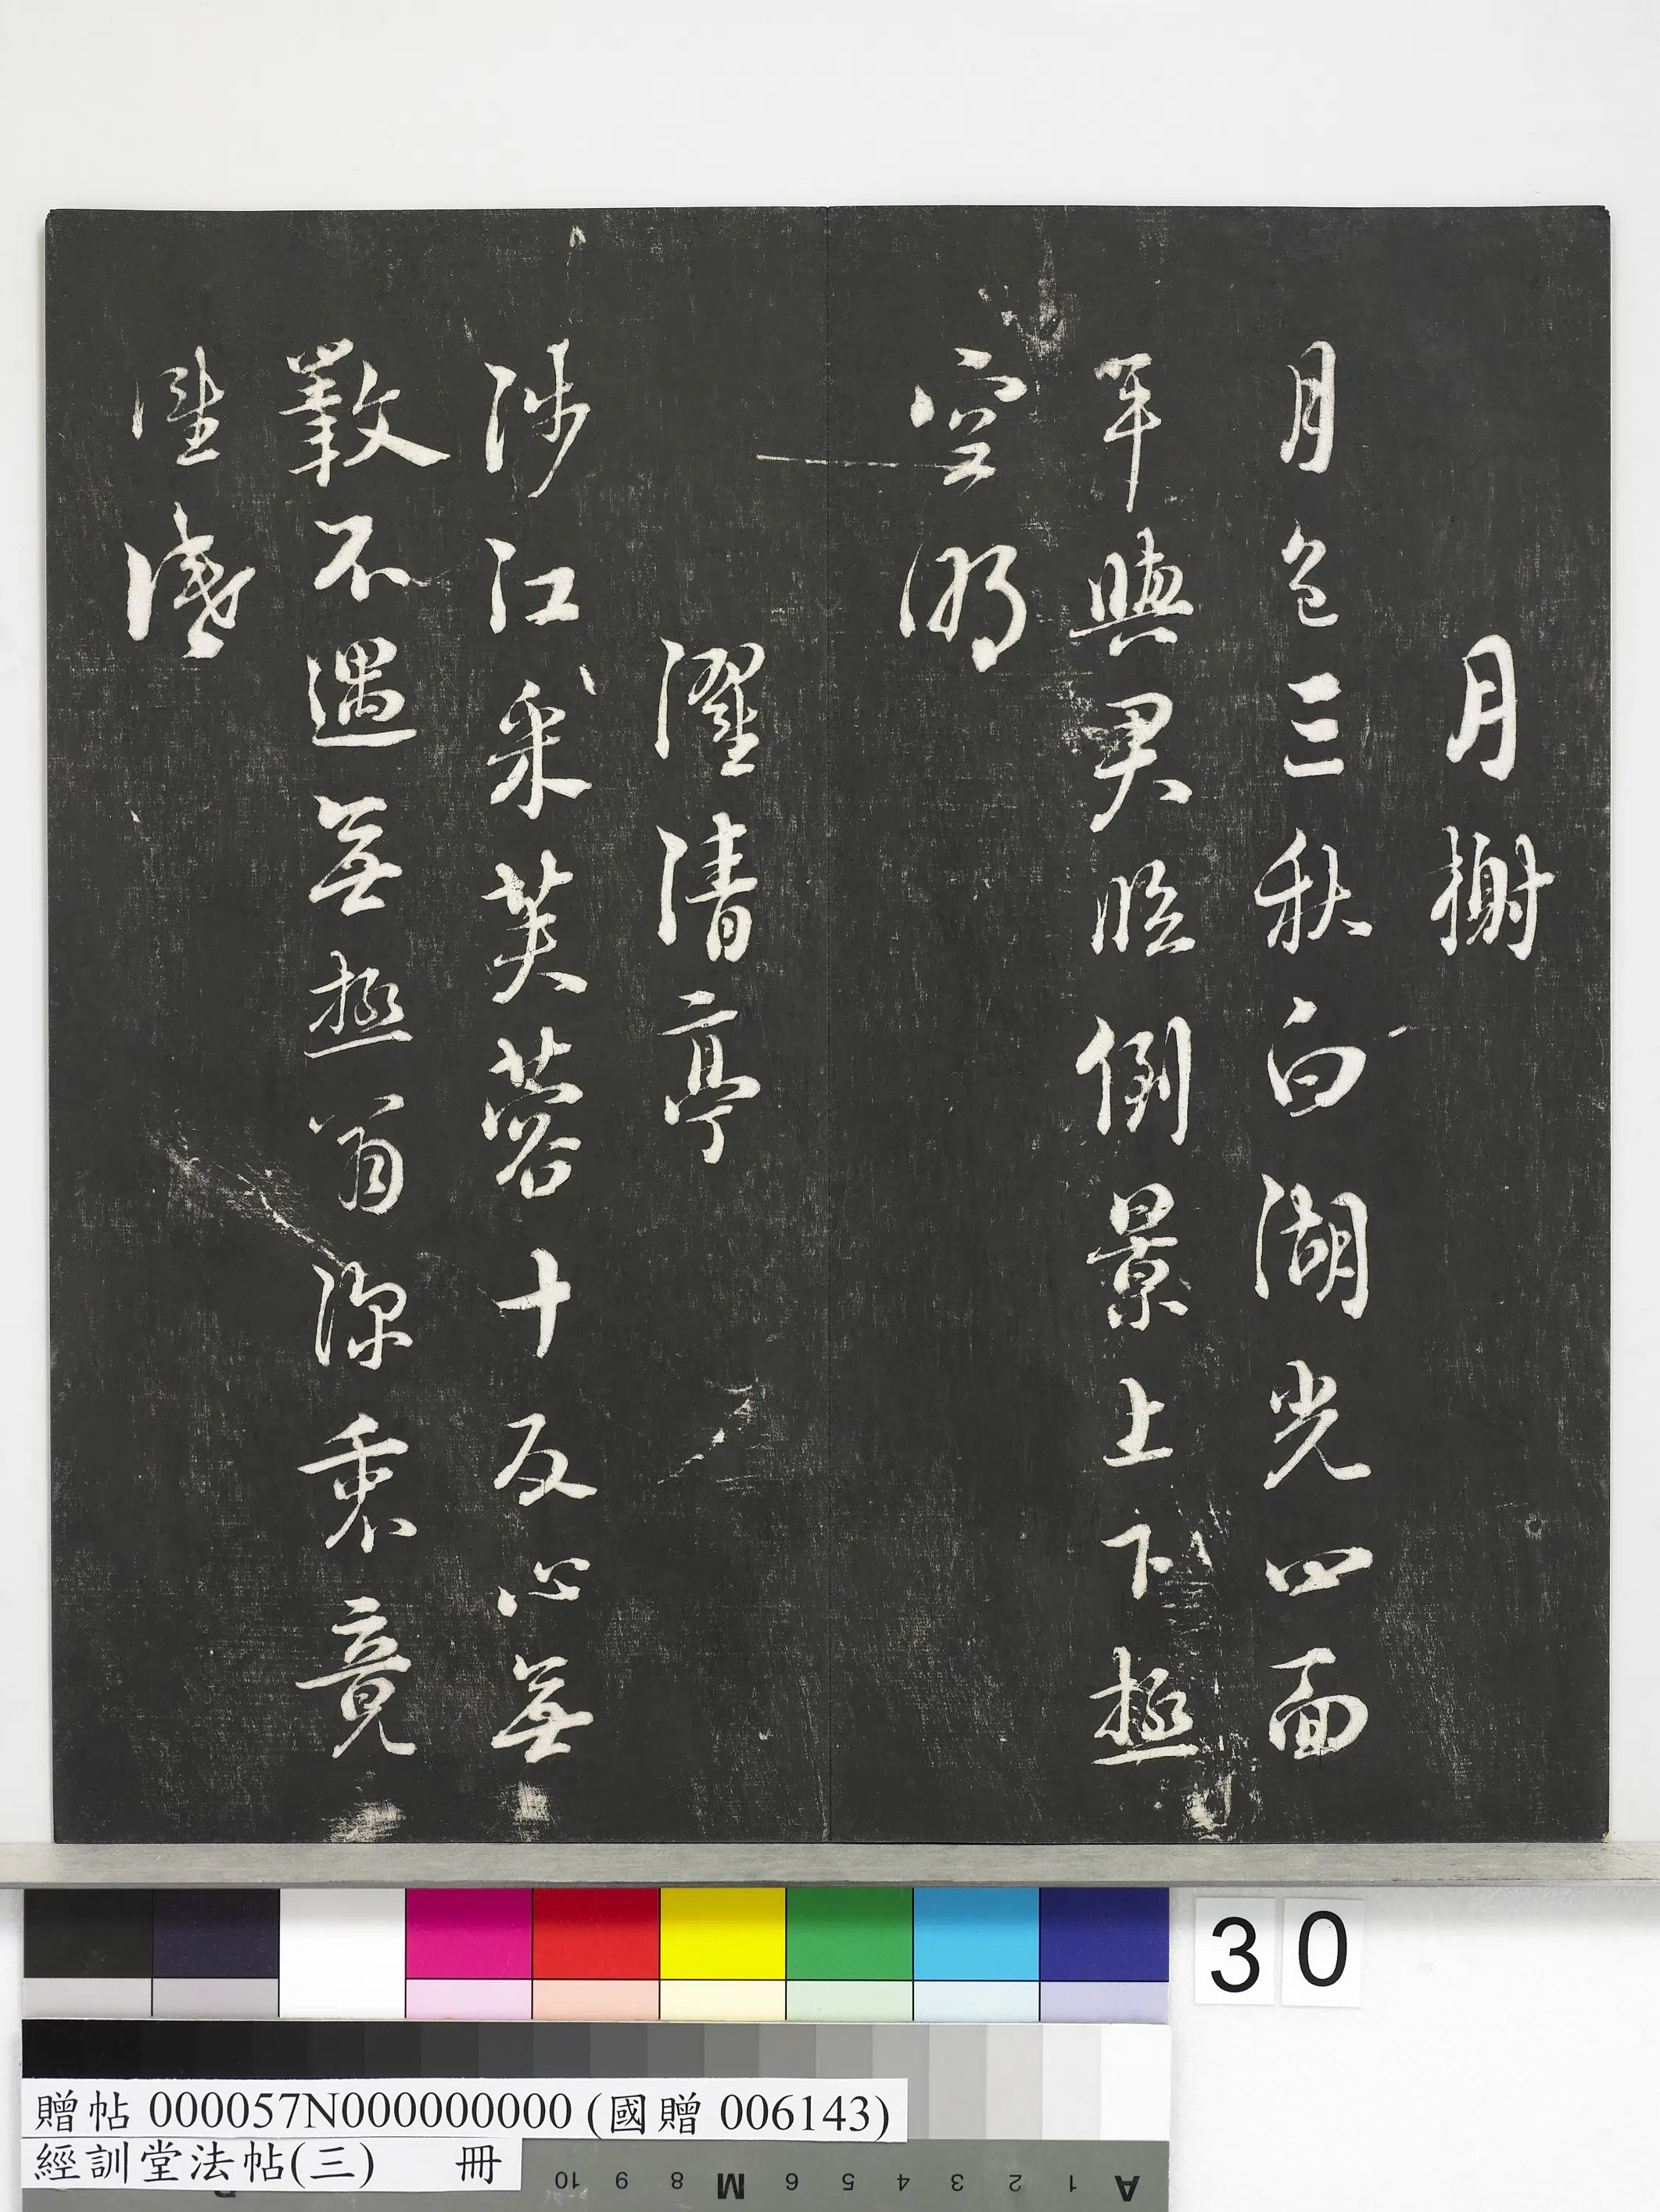 月榭
月色三秋白湖光四面
平與君臨倒景上下極
空明
濯清亭
涉江采芙蓉十反心無
斁不遇無極翁深衷竟
誰識
30
贈帖 000057N000000000 (國贈 006143)
經訓堂法帖(三) 冊
A 1 2 3 4 5 6 M 8 9 10